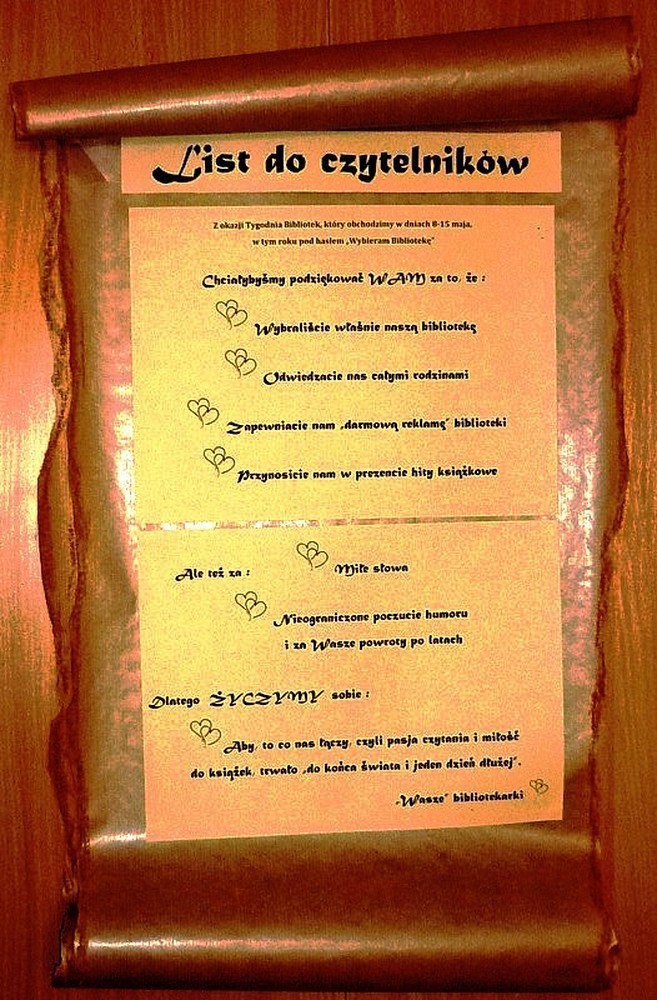 List do czytelników
Z okazji Tygodnia Bibliotek, który obchodzimy w dniach 8-15 maja,
w tym roku pod hasłem „Wybieram Bibliotekę”
Chciałybyśmy podziękować WAM za to, że :
Wybraliście właśnie naszą bibliotekę
Odwiedzacie nas całymi rodzinami
Zapewniacie nam „darmową reklamę” biblioteki
Przynosicie nam w prezencie hity książkowe
Ale też za : Miłe słowa
Nieograniczone poczucie humoru
i za Wasze powroty po latach
Dlatego ŻYCZYMY sobie :
Aby, to co nas łączy, czyli pasja czytania i miłość
do książek, trwało „do końca świata i jeden dzień dłużej”.
„Wasze” bibliotekarki